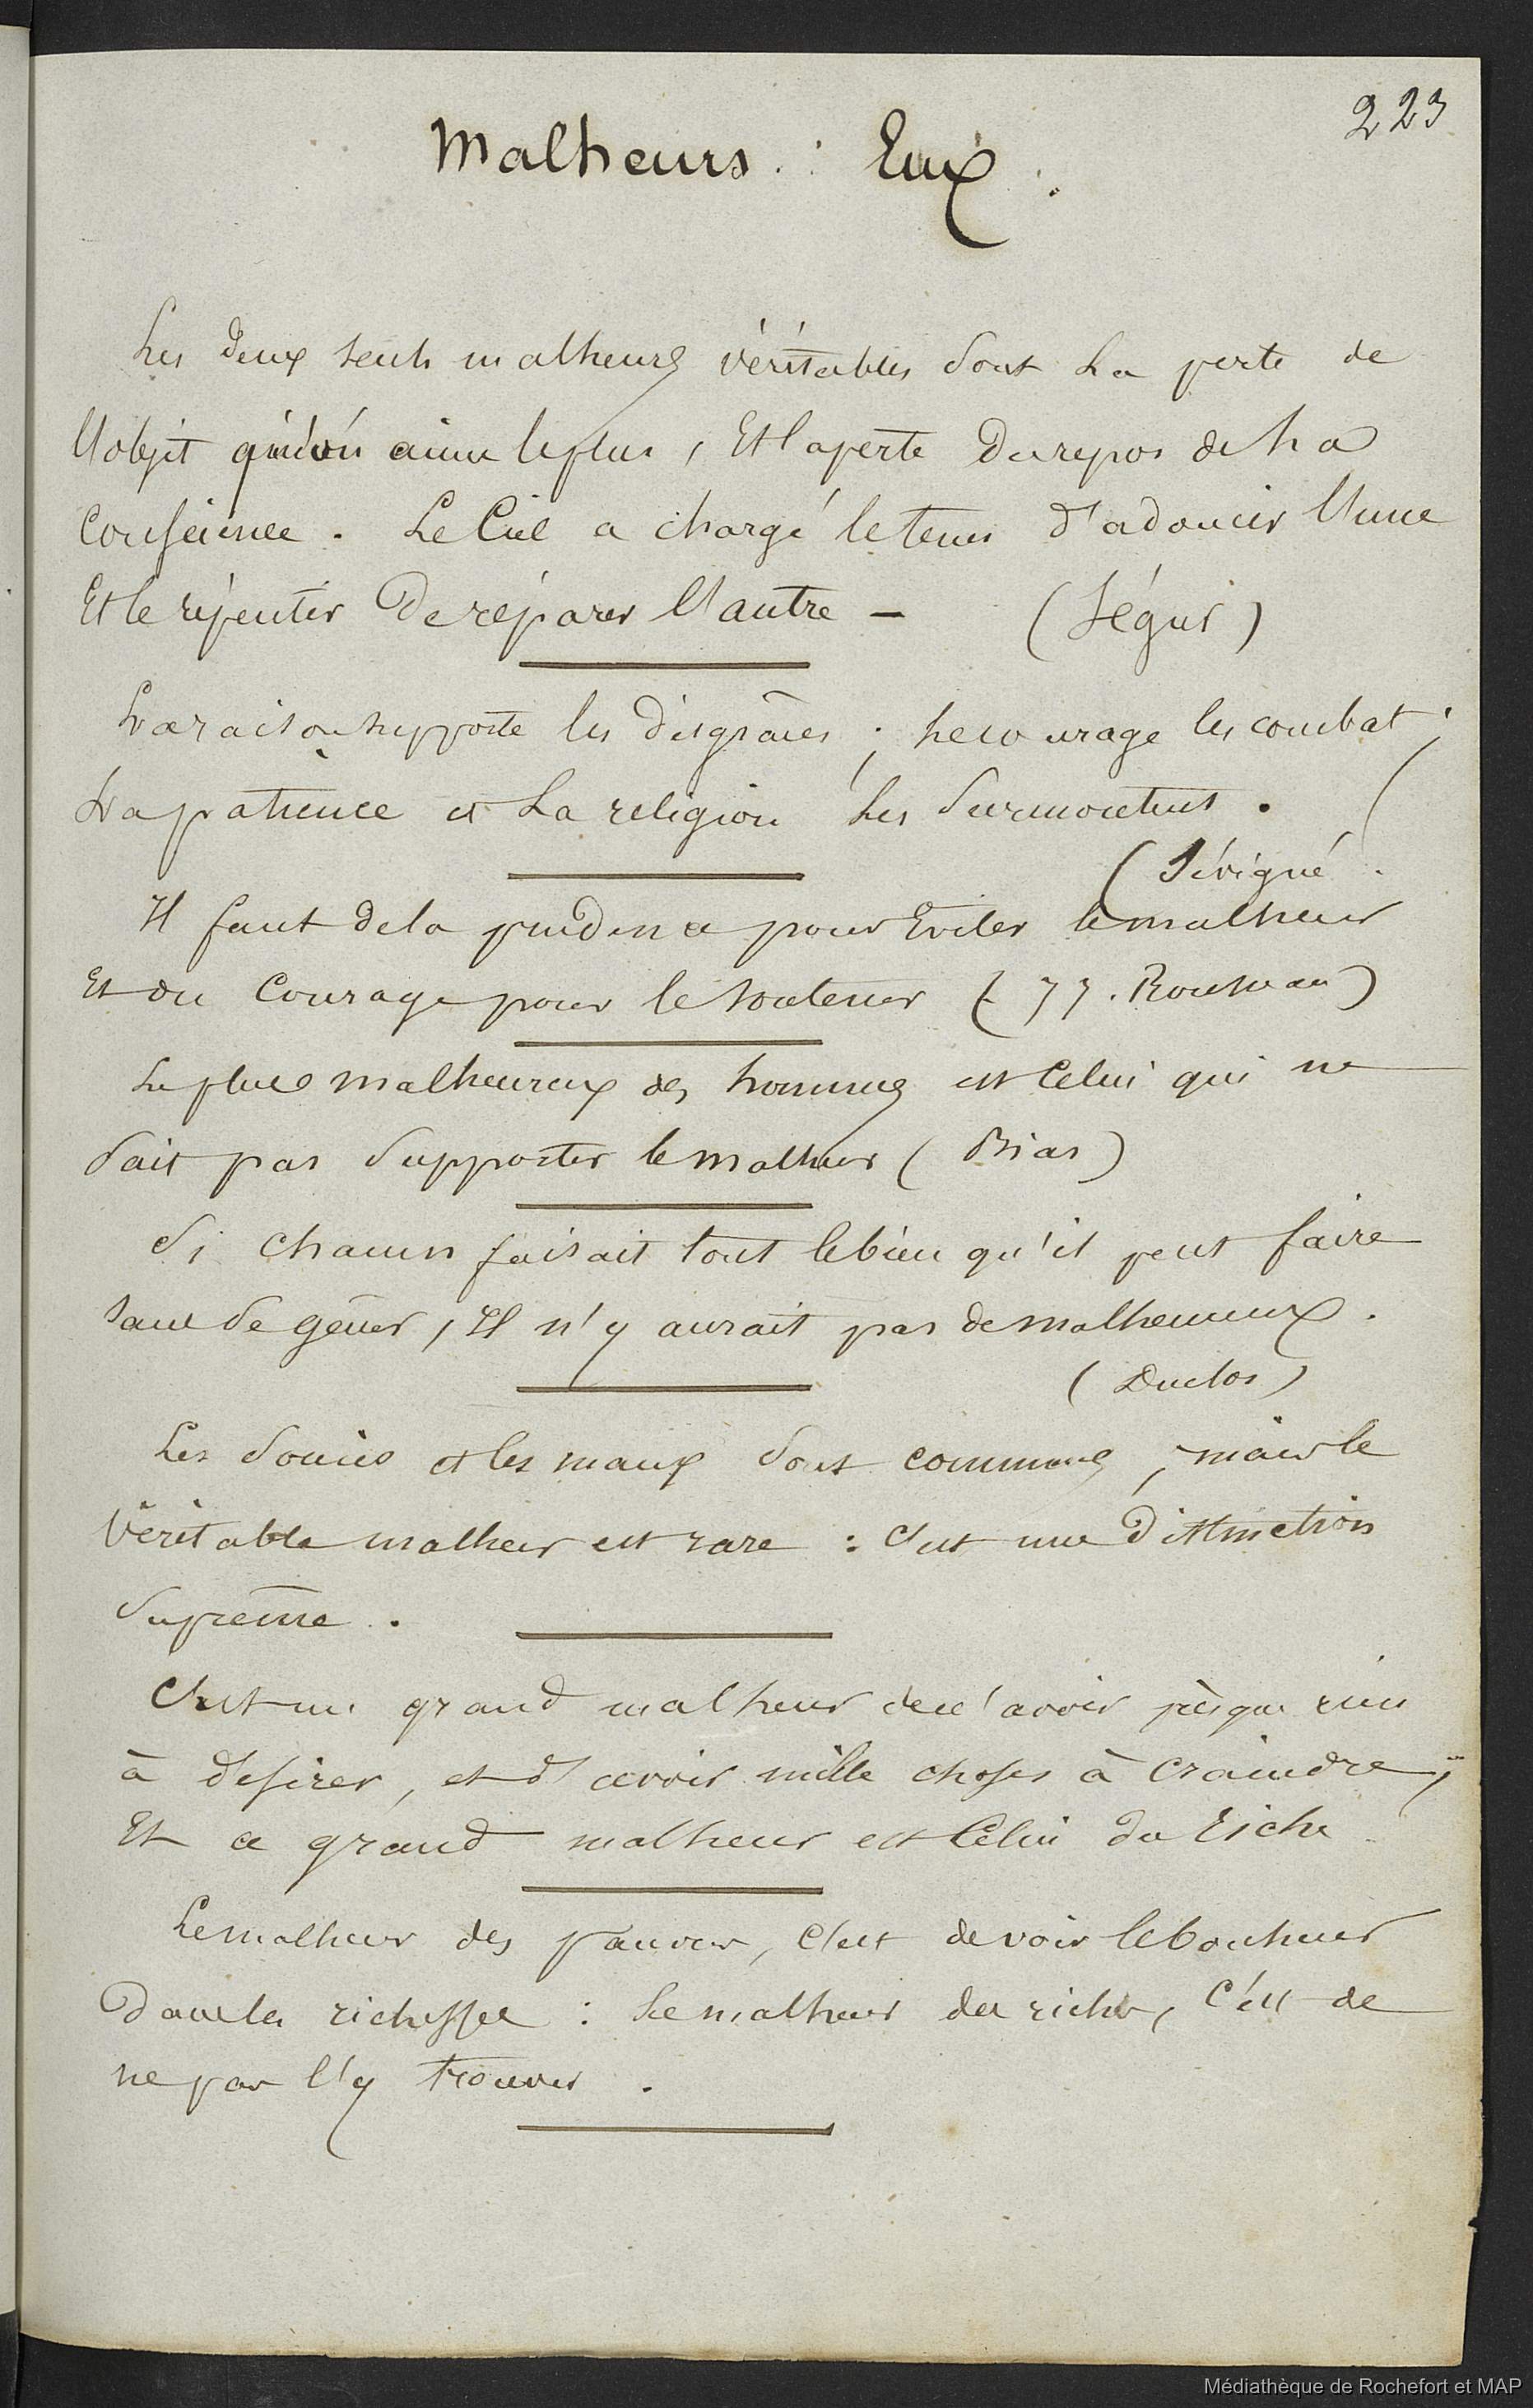 223
Malheurs : Eux .
Les deux seuls malheurs véritables sont La perte de
L'objet qu'on aime le plus, Et la perte du repos de La
Conscience . Le Ciel a chargé le tems d'adoucir L'une
Et le répentir De réparer L'autre — (Ségur)
La raison supporte les disgrâces ; Le courage les combat ;
La patience et La religion Les Surmontent .
(Sévigné .
Il faut de la prudence pour Eviter le malheur
Et du Courage pour le soutenir (J J. Rousseau)
Le plus malheureux des hommes est Celui qui ne
Sait pas Supporter le malheur (Bias)
Si chacun faisait tout le bien qu'il peut faire
sans Se gêner, Il n'y aurait pas de malheureux .
(Duclos)
Les Soucis et les maux Sont communs, mais le
Véritable malheur est rare : C'est une distinction
Suprême .
C'est un grand malheur de n'avoir presque rien
à desirer, et d'avoir mille choses à craindre ;
Et ce grand malheur est Celui du Riche
Le malheur des pauvres, C'est de voir le bonheur
Dans les richesses : Le malheur des riches, C'est de
ne pas l'y trouver .
Médiathèque de Rochefort et MAP